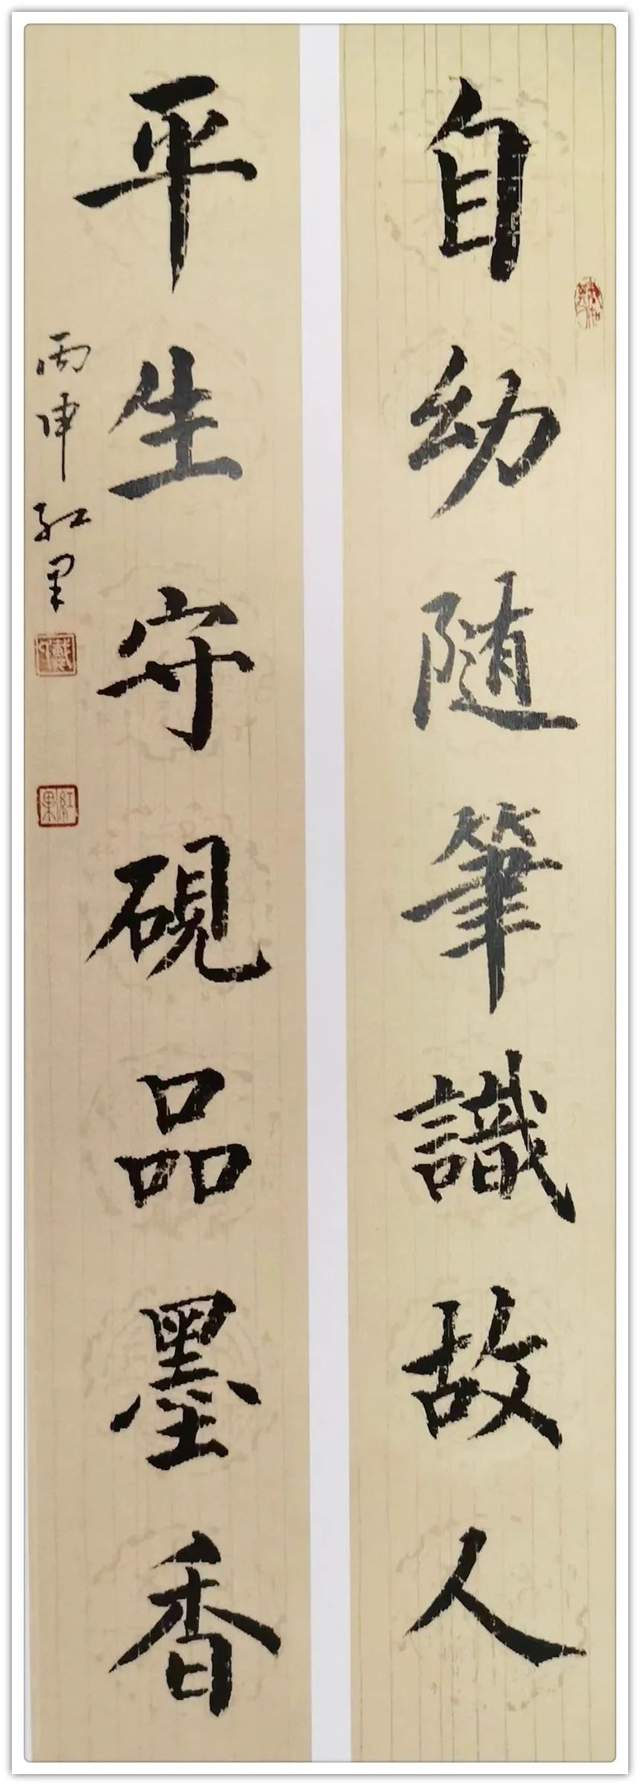 自幼随筆識故人
平生守硯品墨香
丙申紅果
戴
紅果